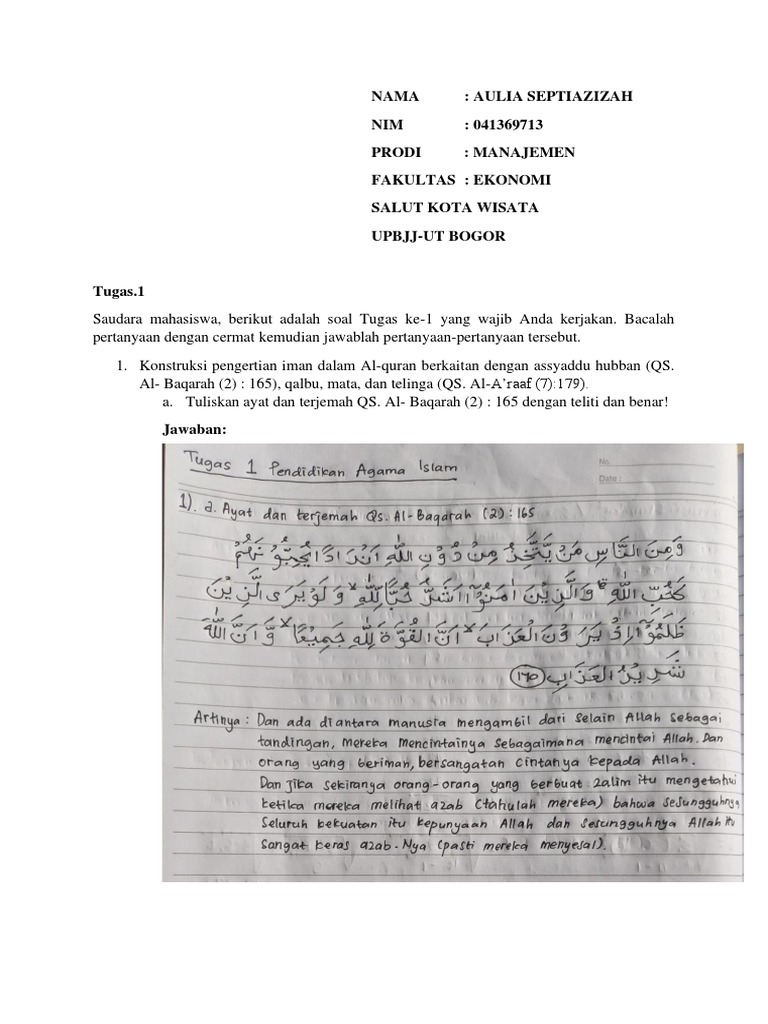 NAMA : AULIA SEPTIAZIZAH
NIM : 041369713
PRODI : MANAJEMEN
FAKULTAS : EKONOMI
SALUT KOTA WISATA
UPBJJ-UT BOGOR
Tugas.1
Saudara mahasiswa, berikut adalah soal Tugas ke-1 yang wajib Anda kerjakan. Bacalah
pertanyaan dengan cermat kemudian jawablah pertanyaan-pertanyaan tersebut.
1. Konstruksi pengertian iman dalam Al-quran berkaitan dengan assyaddu hubban (QS.
Al- Baqarah (2) : 165), qalbu, mata, dan telinga (QS. Al-A’raaf (7):179).
a. Tuliskan ayat dan terjemah QS. Al- Baqarah (2) : 165 dengan teliti dan benar!
Jawaban:
Tugas 1 Pendidikan Agama Islam
No.
Date :
1). a. Ayat dan terjemah Qs. Al-Baqarah (2) : 165
وَمِنَ النَّاسِ مَنْ يَّتَّخِذُ مِنْ دُوْنِ اللّٰهِ اَنْدَادًا يُّحِبُّوْنَهُمْ
كَحُبِّ اللّٰهِ ۗ وَالَّذِيْنَ اٰمَنُوْٓا اَشَدُّ حُبًّا لِّلّٰهِ ۙ وَلَوْ يَرَى الَّذِيْنَ
ظَلَمُوْٓا اِذْ يَرَوْنَ الْعَذَابَ ۙ اَنَّ الْقُوَّةَ لِلّٰهِ جَمِيْعًا ۙ وَّاَنَّ اللّٰهَ
شَدِيْدُ الْعَذَابِ (١٦٥)
Artinya : Dan ada diantara manusia mengambil dari selain Allah sebagai
tandingan, mereka mencintainya sebagaimana mencintai Allah. Dan
orang yang beriman, bersangatan cintanya kepada Allah.
Dan jika sekiranya orang-orang yang berbuat zalim itu mengetahui
ketika mereka melihat azab (tahulah mereka) bahwa sesungguhnya
seluruh kekuatan itu kepunyaan Allah dan sesungguhnya Allah itu
sangat keras azab-Nya (pasti mereka menyesal).